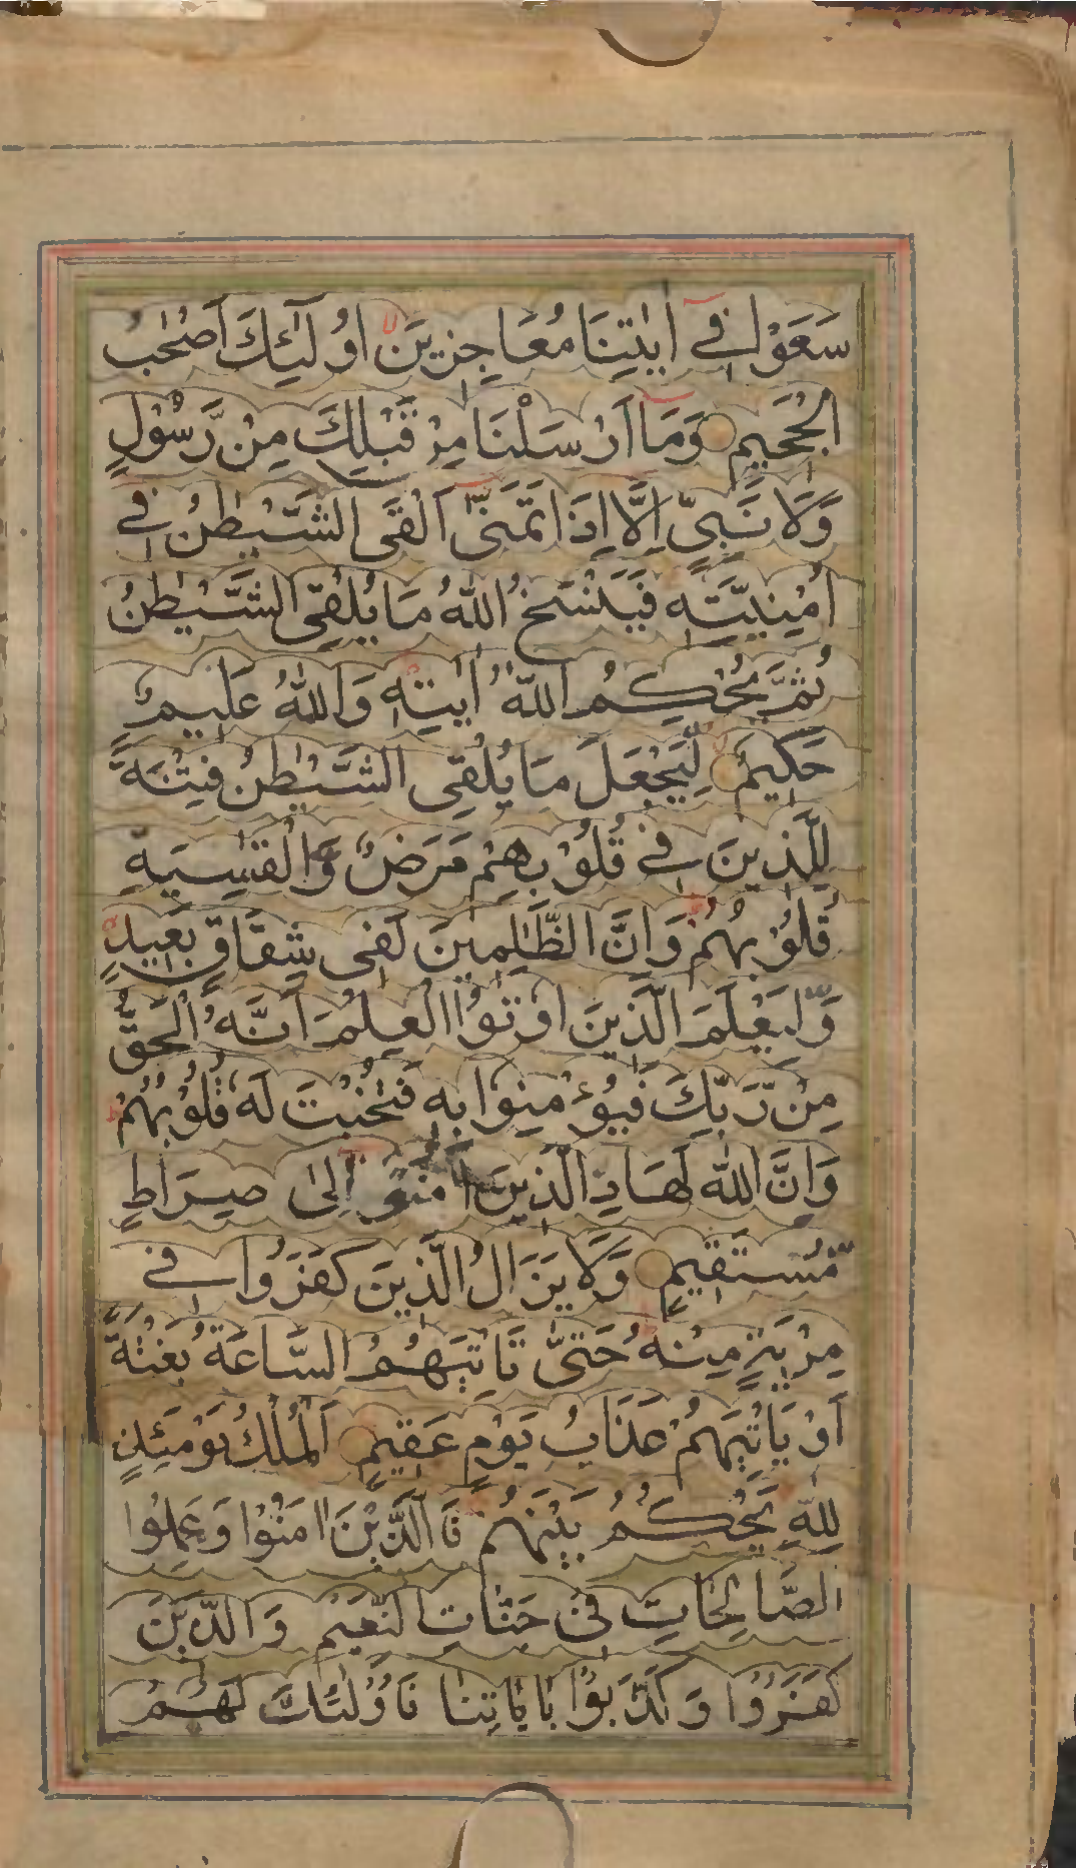 سَعَوْا فِي اٰيٰتِنَا مُعَاجِزِيْنَ اُولٰٓئِكَ اَصْحٰبُ
الْجَحِيْمِ وَمَا اَرْسَلْنَا مِنْ قَبْلِكَ مِنْ رَّسُوْلٍ
وَّلَا نَبِيٍّ اِلَّا اِذَا تَمَنّٰى اَلْقَى الشَّيْطٰنُ فِي
اُمْنِيَّتِهٖ فَيَنْسَخُ اللّٰهُ مَا يُلْقِي الشَّيْطٰنُ
ثُمَّ يُحْكِمُ اللّٰهُ اٰيٰتِهٖ وَاللّٰهُ عَلِيْمٌ
حَكِيْمٌ لِّيَجْعَلَ مَا يُلْقِي الشَّيْطٰنُ فِتْنَةً
لِّلَّذِيْنَ فِي قُلُوْبِهِمْ مَرَضٌ وَّالْقٰسِيَةِ
قُلُوْبُهُمْ وَاِنَّ الظّٰلِمِيْنَ لَفِي شِقَاقٍ بَعِيْدٍ
وَّلِيَعْلَمَ الَّذِيْنَ اُوْتُوا الْعِلْمَ اَنَّهُ الْحَقُّ
مِنْ رَّبِّكَ فَيُؤْمِنُوْا بِهٖ فَتُخْبِتَ لَهٗ قُلُوْبُهُمْ
وَاِنَّ اللّٰهَ لَهَادِ الَّذِيْنَ اٰمَنُوْا اِلٰى صِرَاطٍ
مُّسْتَقِيْمٍ وَلَا يَزَالُ الَّذِيْنَ كَفَرُوْا فِي
مِرْيَةٍ مِنْهُ حَتّٰى تَاْتِيَهُمُ السَّاعَةُ بَغْتَةً
اَوْ يَاْتِيَهُمْ عَذَابُ يَوْمٍ عَقِيْمٍ اَلْمُلْكُ يَوْمَئِذٍ
لِلّٰهِ يَحْكُمُ بَيْنَهُمْ فَالَّذِيْنَ اٰمَنُوْا وَعَمِلُوا
الصَّالِحَاتِ فِيْ جَنَّاتِ النَّعِيْمِ وَالَّذِيْنَ
كَفَرُوْا وَكَذَّبُوْا بِاٰيَاتِنَا فَاُولٰئِكَ لَهُمْ